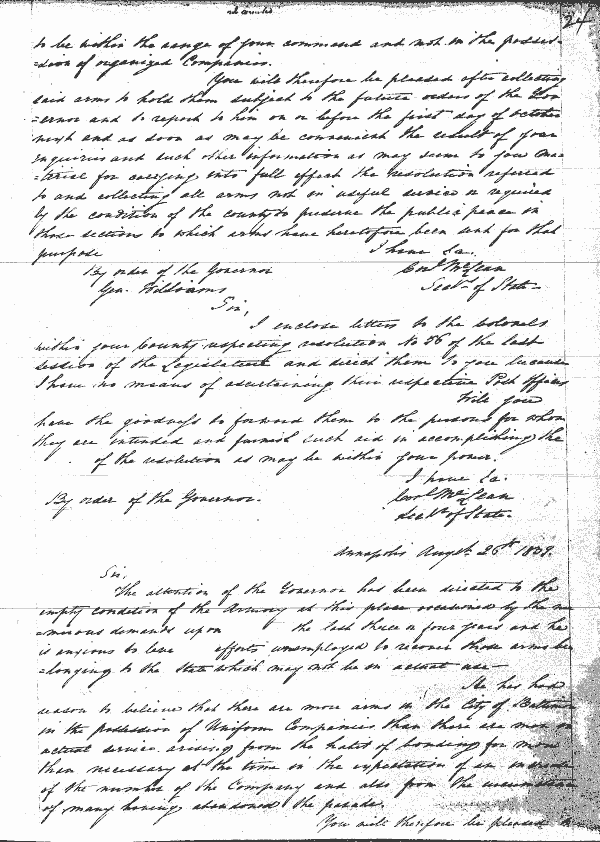 24
to be within the range of your command and not in the posses-
=sion of organized Companies.
You will therefore be pleased after collecting
said arms to hold them subject to the future orders of the Gov
=ernor and to report to him on or before the first day of October
next and as soon as may be convenient the result of your
enquiries and such other information as may seem to you ma=
=terial for carrying into full effect the resolution referred
to and collecting all arms not in useful service or required
by the condition of the county to preserve the public peace in
those sections to which arms have heretofore been sent for that
purpose
I have &a.
By order of the Governor
Corn. McLean
Gen. Williams
Secty. of State
Sir,
I enclose letters to the Colonels
within your County respecting resolution No 56 of the last
session of the Legislature and direct them to you because
I have no means of ascertaining their respective Post Offices
Will you
have the goodness to forward them to the persons for whom
they are intended and furnish such aid in accomplishing the
of the resolution as may be within your power.
I have &a.
By order of the Governor.
McLean
Secty of State.
Annapolis Augst. 26th 1839.
Sir,
The attention of the Governor has been directed to the
empty condition of the Armory at this place occasioned by the nu
=merous demands upon the last three or four years and he
is anxious to leave efforts unemployed to recover those arms be
=longing to the State which may not be in actual use—
He has had
reason to believe that there are more arms in the City of Baltimore
in the possession of Uniform Companies than there are men in
actual service arising from the habit of bonding for more
than necessary at the time in the expectation of an increase
of the number of the Company and also from the
of many having abandoned the parade.
You will therefore be pleased